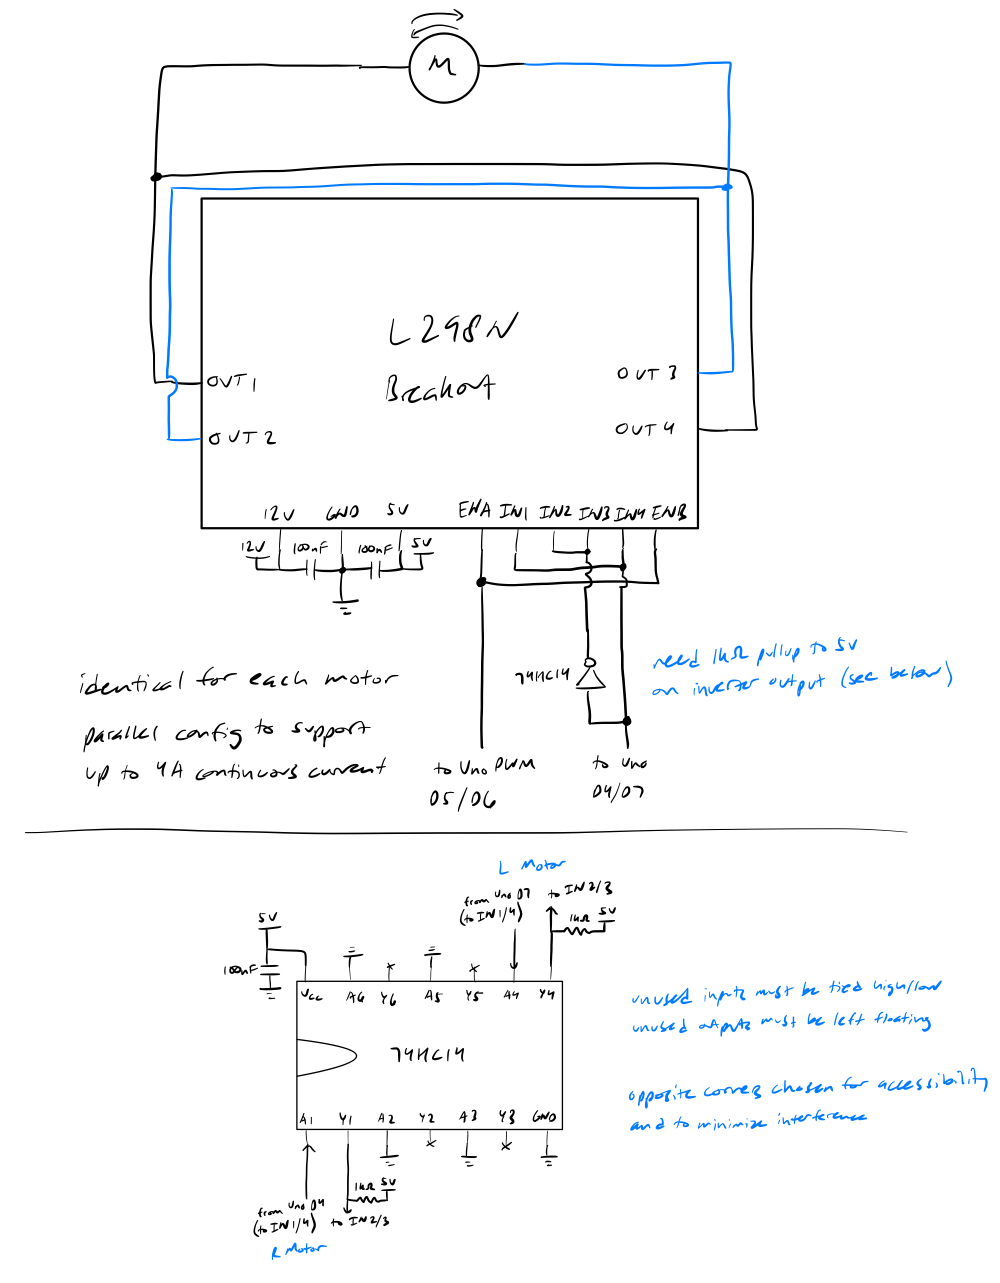 M
L298N
Breakout
OUT 1
OUT 2
OUT 3
OUT 4
12V GND 5V ENA IN1 IN2 IN3 IN4 ENB
12V 100nF 100nF 5V
74HC14
need 1kΩ pullup to 5v
on inverter output (see below)
identical for each motor
parallel config to support
up to 4A continuous current
to Uno PWM
05/06
to Uno
04/07
L Motor
from Uno 07
(to IN1/4)
to IN2/3
1kΩ 5V
5V
100nF
Vcc A6 Y6 A5 Y5 A4 Y4
74HC14
A1 Y1 A2 Y2 A3 Y3 GND
unused inputs must be tied high/low
unused outputs must be left floating
opposite corners chosen for accessibility
and to minimize interference
1kΩ 5V
from Uno 04
(to IN1/4)
to IN2/3
R Motor